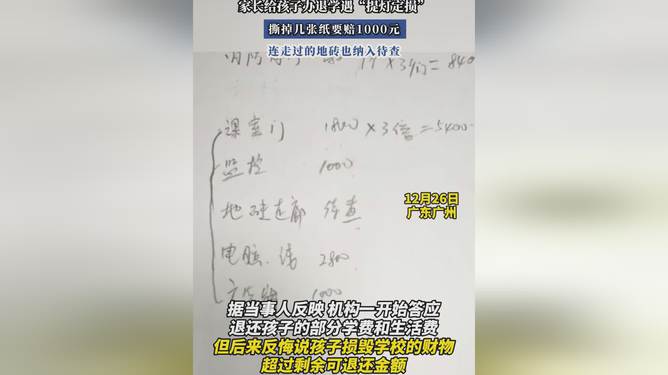 家长给孩子办退学遇“提灯定损”
撕掉几张纸要赔1000元
连走过的地砖也纳入待查
×3倍=840
课室门 1800×3倍=5400
监控 1000
地砖走廊 待查
电脑、 2800
12月26日
广东广州
据当事人反映 机构一开始答应
退还孩子的部分学费和生活费
但后来反悔说孩子损毁学校的财物
超过剩余可退还金额